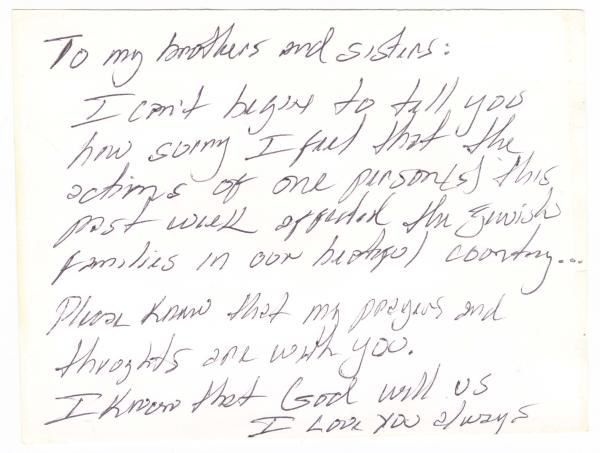 To my brothers and sisters:
I can't begin to tell you
how sorry I feel that the
actions of one person(s) this
past week affected the Jewish
families in our beatiful country...
Please know that my prayers and
throghts are with you.
I know that God will us
I Love you always